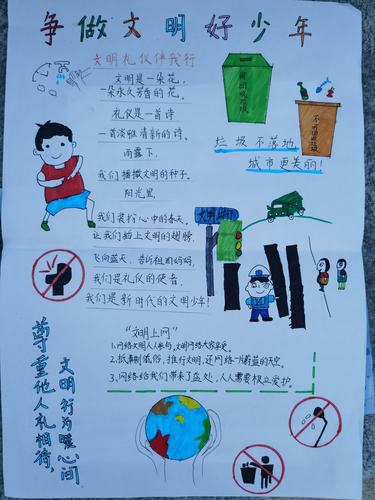 争做文明好少年
文明礼仪伴我行
文明是一朵花,
一朵永久芳香的花。
礼仪是一首诗
一首淡雅清新的诗。
雨露下,
我们播撒文明的种子。
阳光里,
我们装扮心中的春天。
让我们插上文明的翅膀,
飞向蓝天,告诉祖国妈妈,
我们是礼仪的使者,
我们是新时代的文明少年!
可回收垃圾
不可回收垃圾
垃圾不落地
城市更美丽!
文明
"文明上网"
1.网络文明人人参与,文明网络大家享受。
2.抵制低俗,推行文明,还网络一片蔚蓝的天空。
3.网络给我们带来了益处,人人需要权立爱护
尊重他人礼相待,
文明行为暖心间